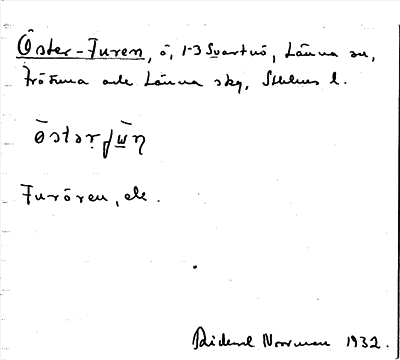 Öster-Furen, ö, 1-3 Svartnö, Länna sn,
Frötuna och Länna skg, Sthlms l.
Furören, ek.
Rickard Norrman 1932.